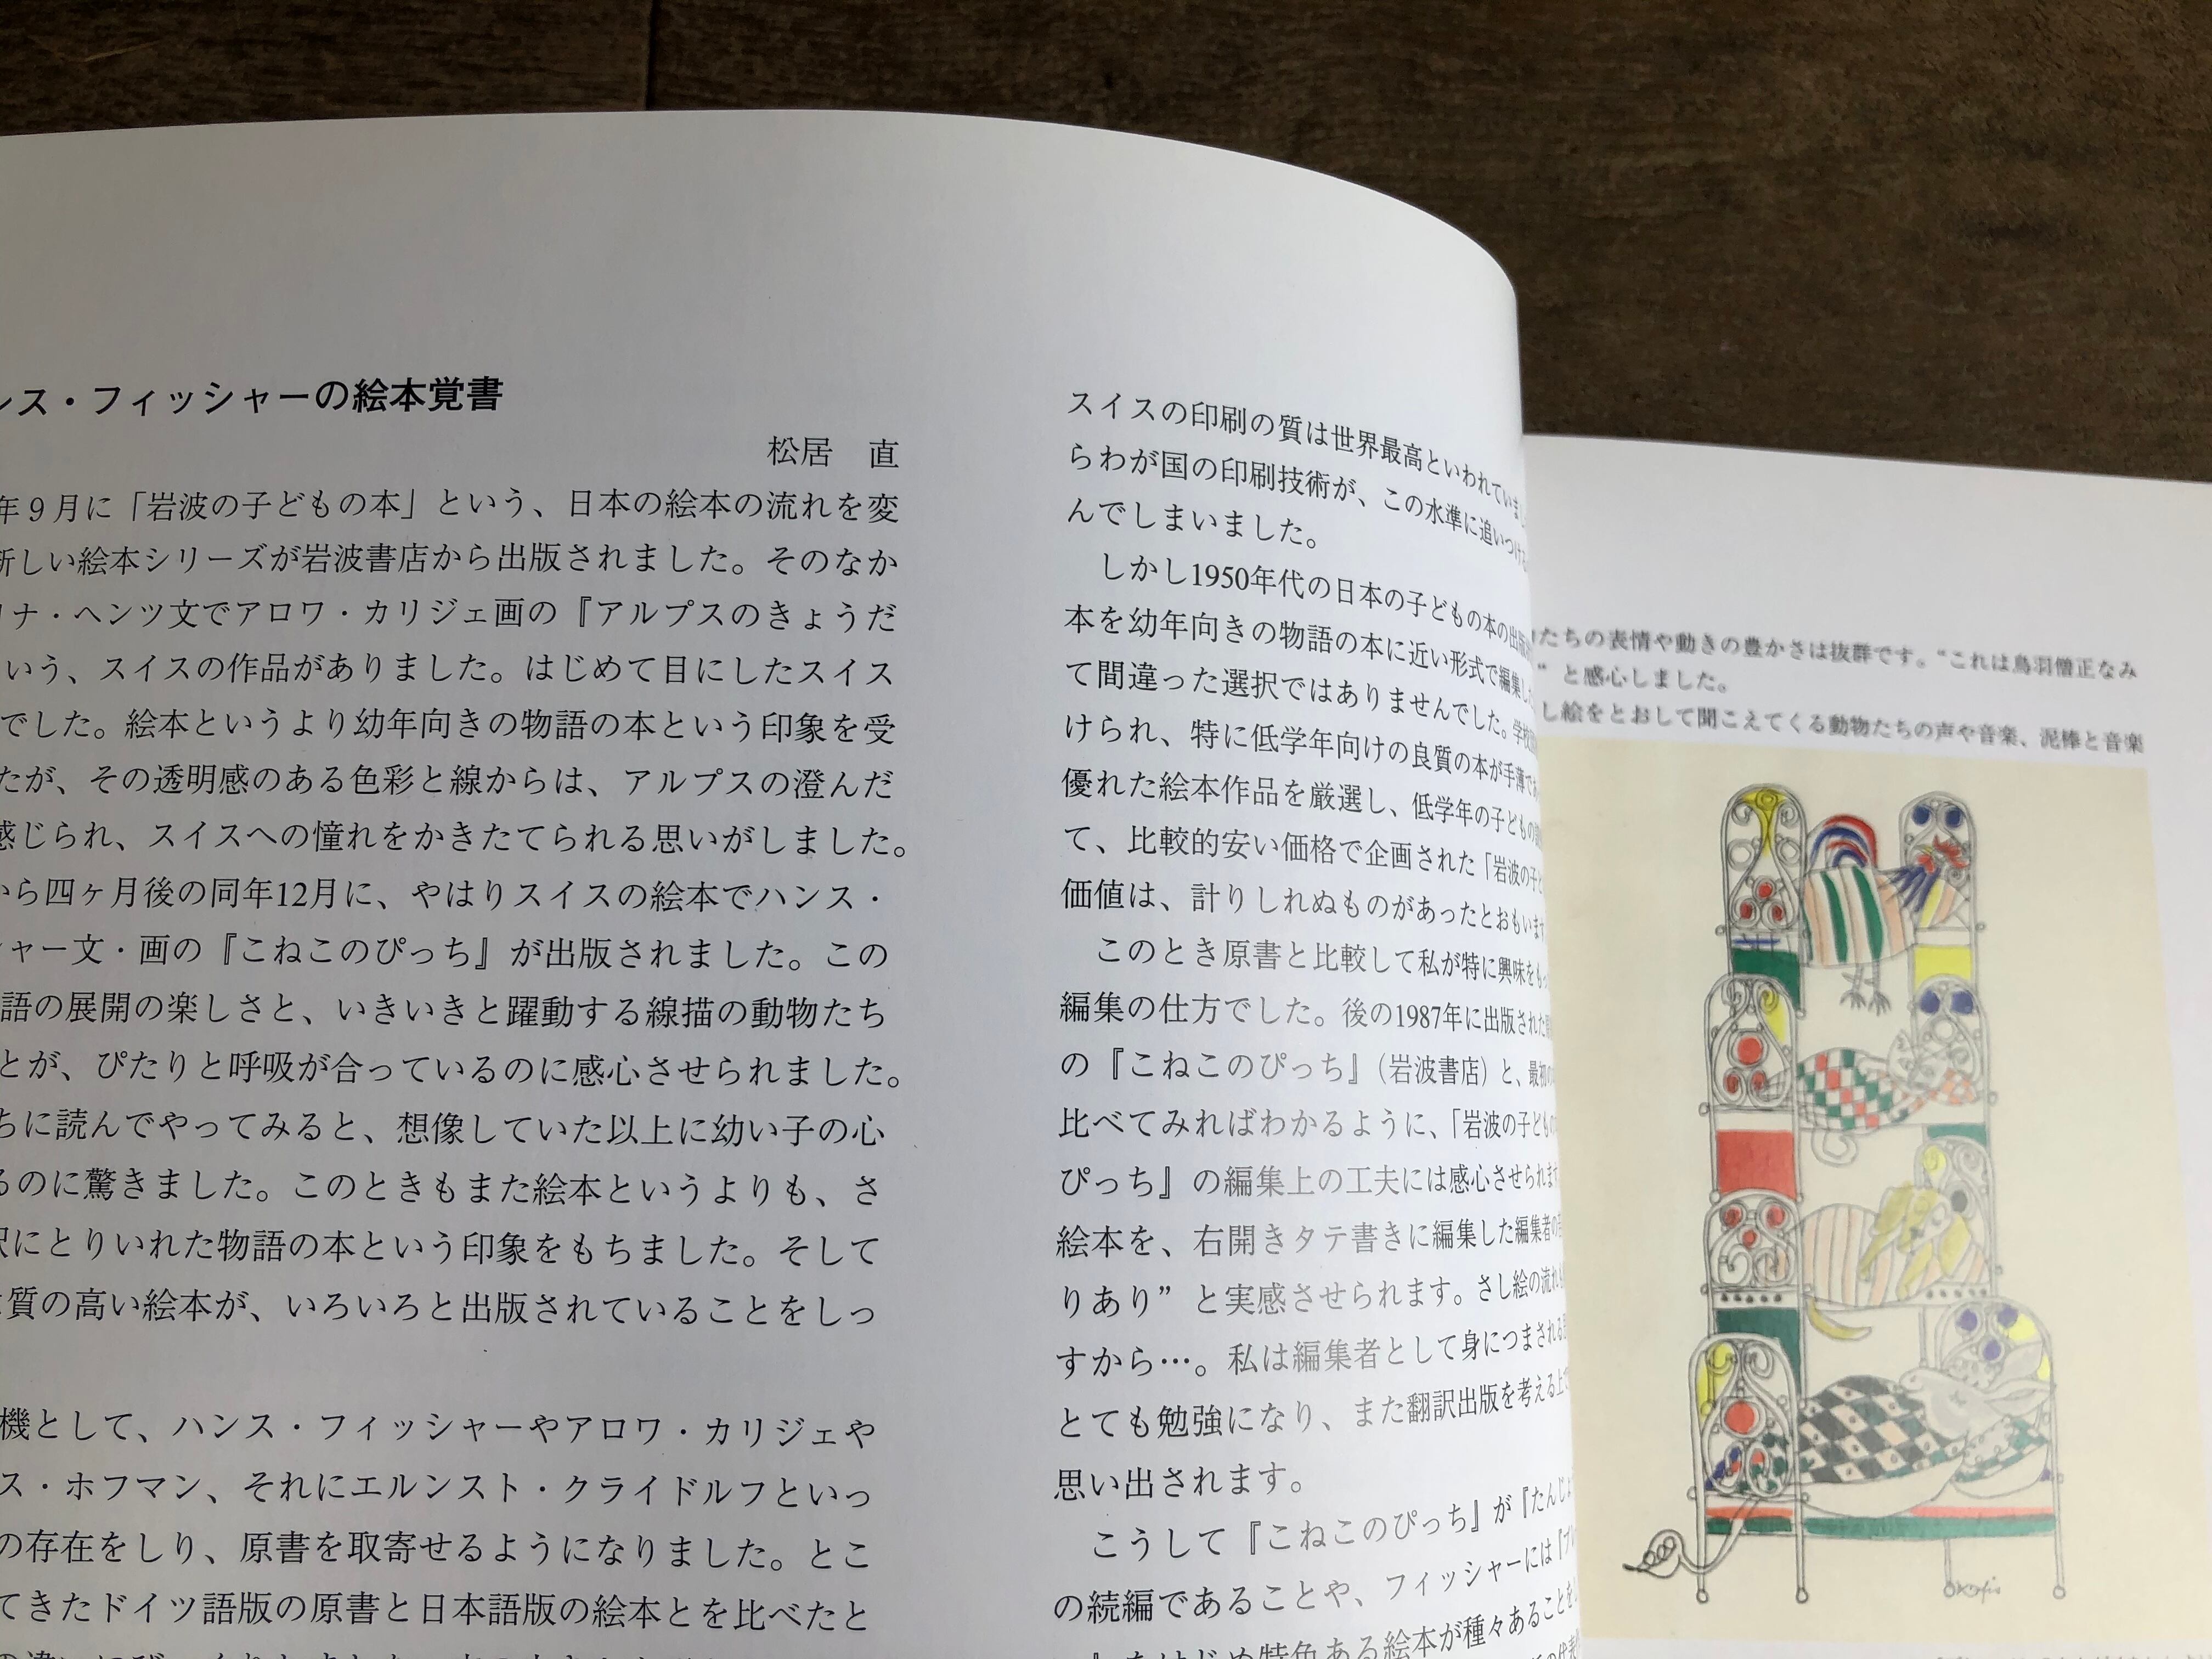 ンス・フィッシャーの絵本覚書
松居　直
年9月に「岩波の子どもの本」という、日本の絵本の流れを変
新しい絵本シリーズが岩波書店から出版されました。そのなか
リナ・ヘンツ文でアロワ・カリジェ画の『アルプスのきょうだ
いう、スイスの作品がありました。はじめて目にしたスイス
でした。絵本というより幼年向きの物語の本という印象を受
たが、その透明感のある色彩と線からは、アルプスの澄んだ
感じられ、スイスへの憧れをかきたてられる思いがしました。
から四ヶ月後の同年12月に、やはりスイスの絵本でハンス・
シャー文・画の『こねこのぴっち』が出版されました。この
語の展開の楽しさと、いきいきと躍動する線描の動物たち
とが、ぴたりと呼吸が合っているのに感心させられました。
ちに読んでやってみると、想像していた以上に幼い子の心
るのに驚きました。このときもまた絵本というよりも、さ
沢にとりいれた物語の本という印象をもちました。そして
質の高い絵本が、いろいろと出版されていることをしっ
機として、ハンス・フィッシャーやアロワ・カリジェや
ス・ホフマン、それにエルンスト・クライドルフといっ
の存在をしり、原書を取寄せるようになりました。とこ
てきたドイツ語版の原書と日本語版の絵本とを比べたと
スイスの印刷の質は世界最高といわれていまし
らわが国の印刷技術が、この水準に追いつけ
んでしまいました。
しかし1950年代の日本の子どもの本の出版
本を幼年向きの物語の本に近い形式で編集し
て間違った選択ではありませんでした。学校
けられ、特に低学年向けの良質の本が手薄で
優れた絵本作品を厳選し、低学年の子どもの
て、比較的安い価格で企画された「岩波の子
価値は、計りしれぬものがあったとおもいます
このとき原書と比較して私が特に興味をも
編集の仕方でした。後の1987年に出版された
の『こねこのぴっち』（岩波書店）と、最初の
比べてみればわかるように、「岩波の子ども
ぴっち』の編集上の工夫には感心させられます
絵本を、右開きタテ書きに編集した編集者の
りあり”と実感させられます。さし絵の流れ
すから…。私は編集者として身につまされる
とても勉強になり、また翻訳出版を考える上
思い出されます。
こうして『こねこのぴっち』が『たんじょ
の続編であることや、フィッシャーには『ブレ
』をはじめ特色ある絵本が種々あることを
たちの表情や動きの豊かさは抜群です。“これは鳥羽僧正なみ
”と感心しました。
し絵をとおして聞こえてくる動物たちの声や音楽、泥棒と音楽